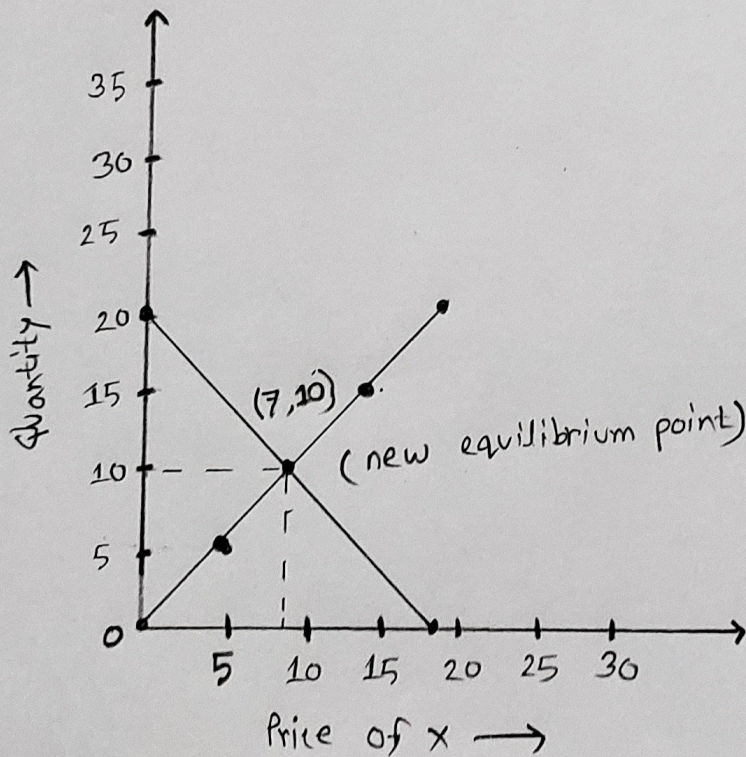 35
30
25
20
15
10
5
0
Quantity →
(7,10)
(new equilibrium point)
5 10 15 20 25 30
Price of x →